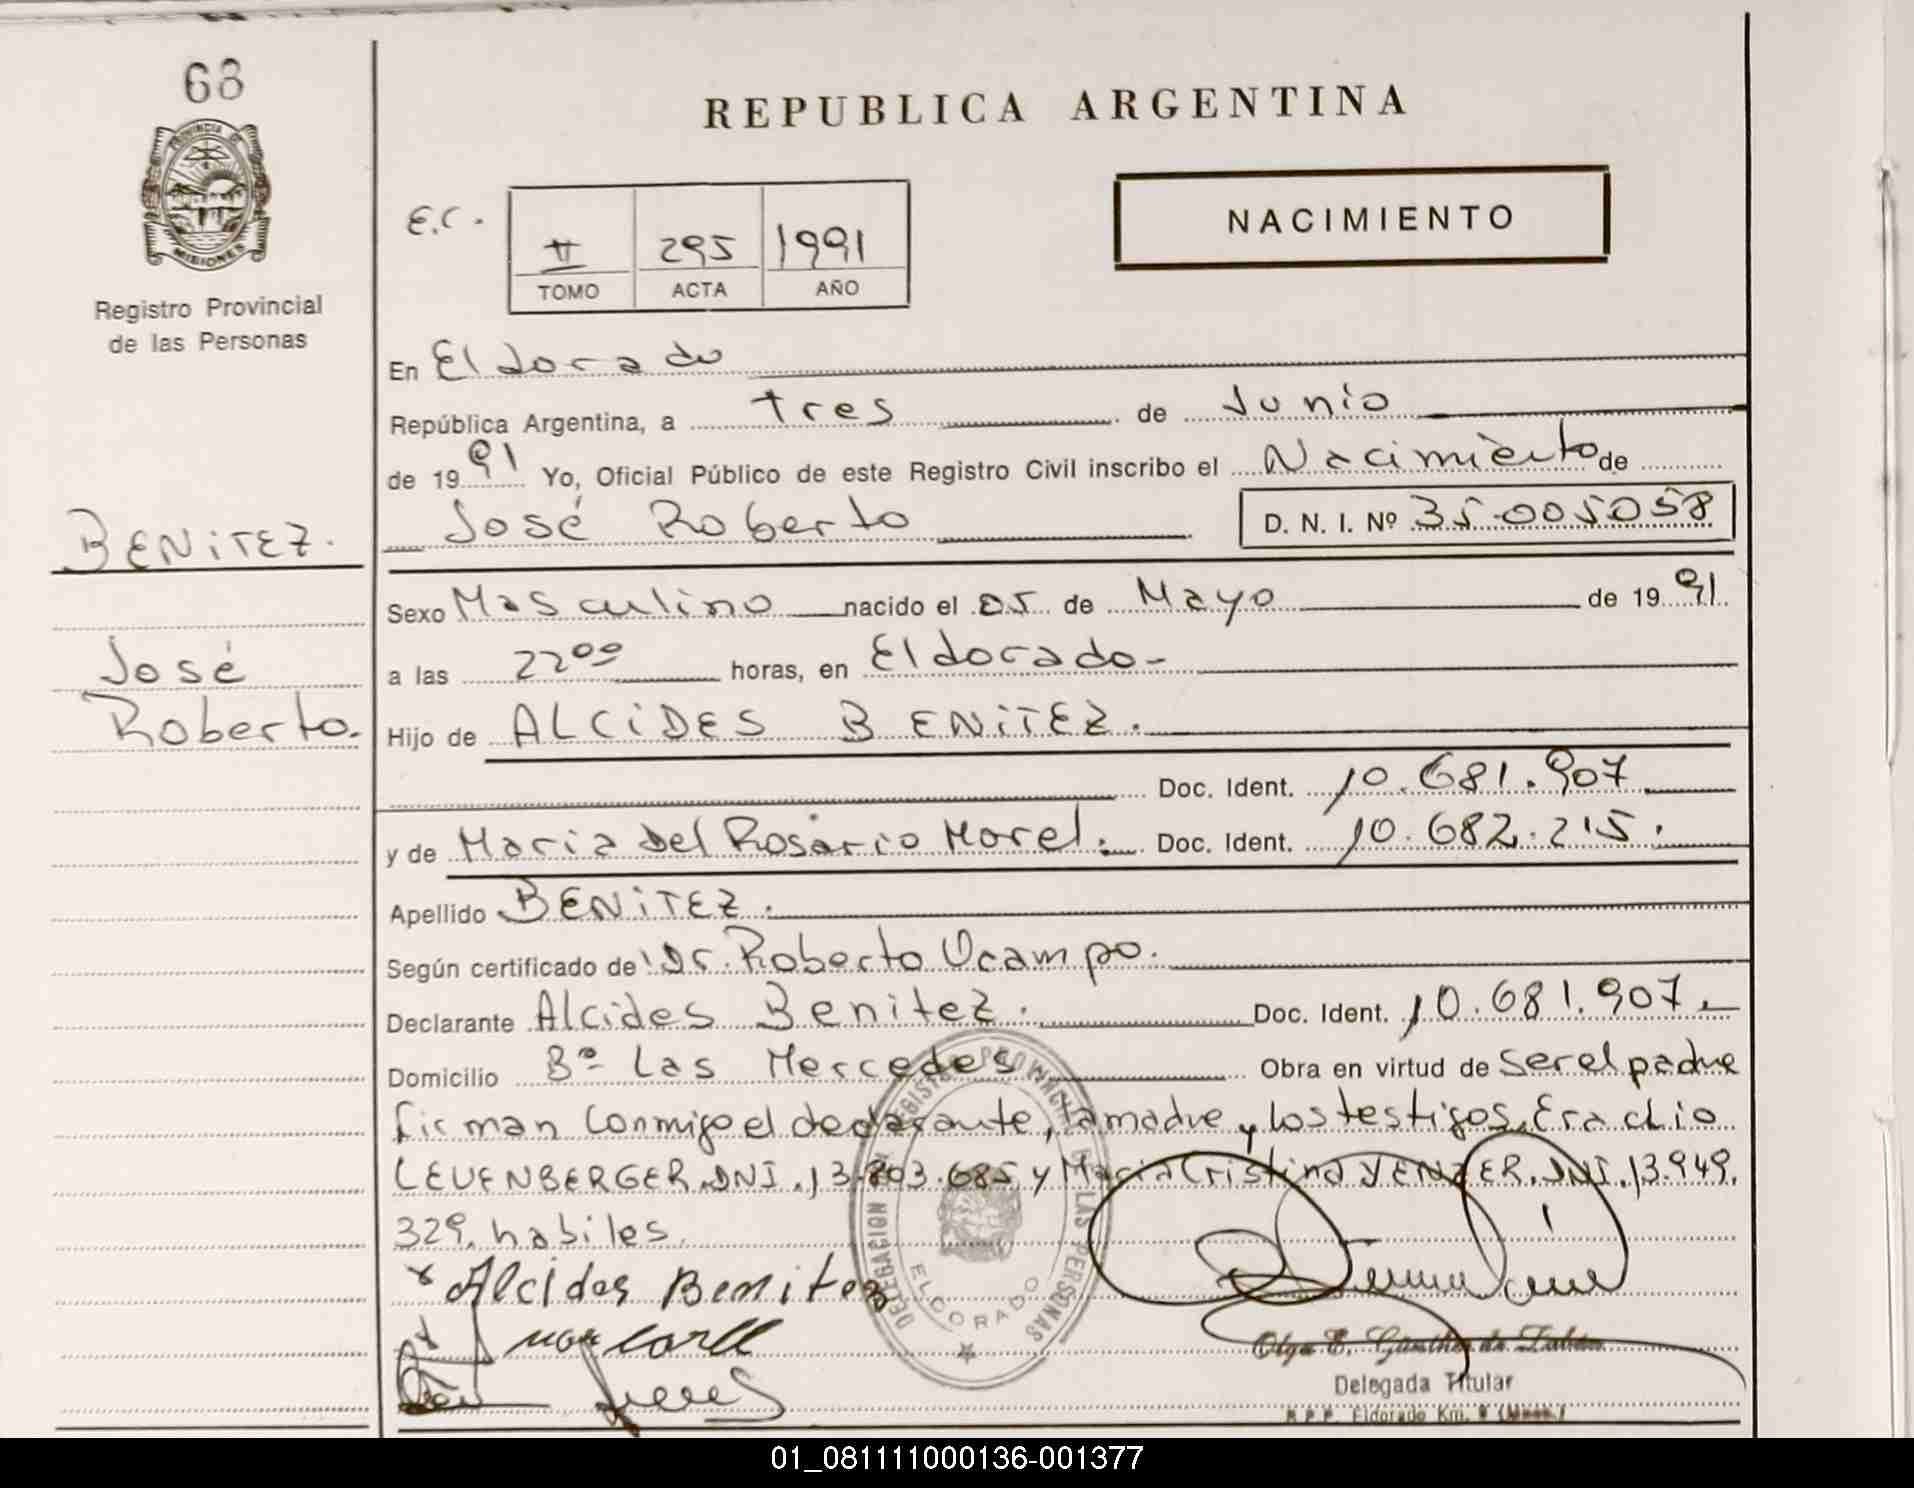 68
PROVINCIA DE
MISIONES
Registro Provincial
de las Personas
REPUBLICA ARGENTINA
E.C.
II 295 1991
TOMO ACTA AÑO
NACIMIENTO
En Eldorado
República Argentina, a tres de Junio
de 1991 Yo, Oficial Público de este Registro Civil inscribo el Nacimiento de
José Roberto D. N. I. Nº 35.005058
BENITEZ.
José
Roberto.
Sexo Masculino nacido el 05 de Mayo de 1991
a las 22⁰⁰ horas, en Eldorado-
Hijo de ALCIDES BENITEZ.
Doc. Ident. 10.681.907
y de Maria Del Rosario Morel. Doc. Ident. 10.682.215.
Apellido BENITEZ.
Según certificado de Dr. Roberto Ocampo.
Declarante Alcides Benitez. Doc. Ident. 10.681.907
Domicilio Bº Las Mercedes Obra en virtud de ser el padre
firman conmigo el declarante, la madre y los testigos, Eraclio
LEUENBERGER. DNI. 13.803.685 y Maria Cristina YENZER. DNI. 13.949.
329. habiles.
x Alcides Benitez
DELEGACION REGISTRO PROVINCIAL DE LAS PERSONAS
ELDORADO
Olga E. Günther de
Delegada Titular
R.P.P. Eldorado Km. 9 (Mnes.)
01_081111000136-001377